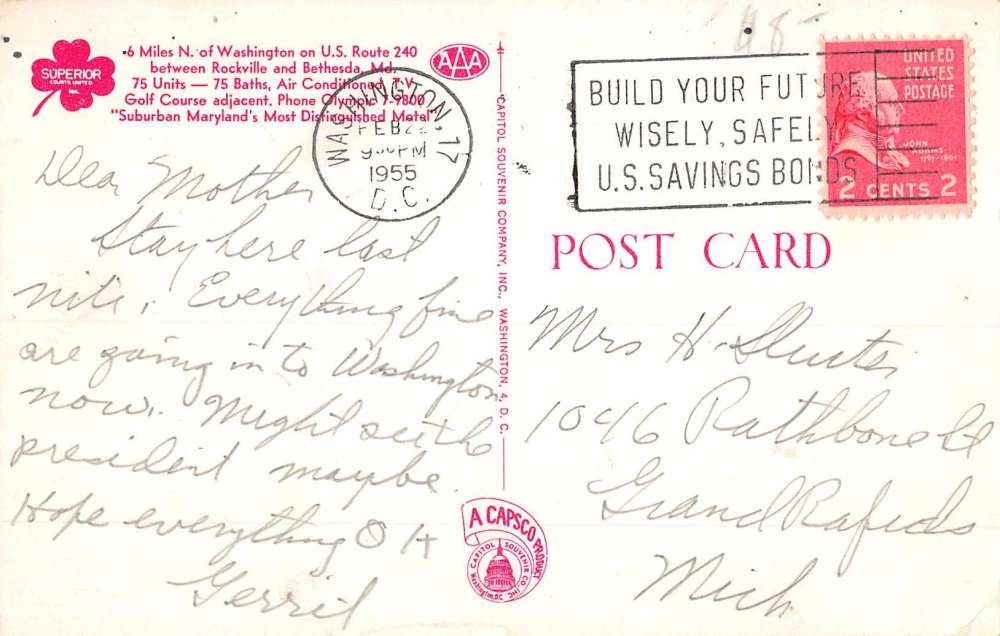 SUPERIOR
COURTS UNITED
INC.
6 Miles N. of Washington on U.S. Route 240
between Rockville and Bethesda, Md.
75 Units — 75 Baths, Air Conditioned, T.V.
Golf Course adjacent. Phone Olympic 7-9800
"Suburban Maryland's Most Distinguished Motel"
AAA
WASHINGTON, 17
FEB 22
PM
1955
D. C.
Dear Mother
Stay here last
nite. Everything fine
are going in to Washington
now. Might see the
president maybe.
Hope everything O K
Gerrit
CAPITOL SOUVENIR COMPANY, INC., WASHINGTON, 4, D. C.
A CAPSCO PRODUCT
CAPITOL SOUVENIR CO. INC.
Washington, DC
48
BUILD YOUR FUTURE
WISELY, SAFELY
U.S. SAVINGS BONDS
UNITED
STATES
POSTAGE
JOHN
ADAMS
1797-1801
2 CENTS 2
POST CARD
Mrs H. Sluiter
1046 Rathbone
Grand Rapids
Mich